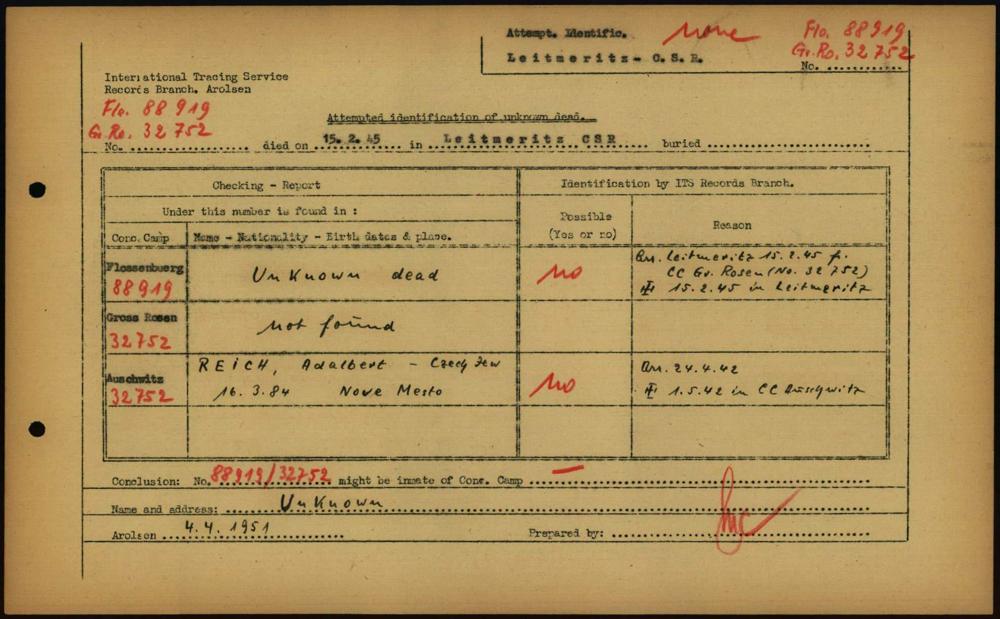 Attempt. Identific. none Flo. 88919
Gr. Ro. 32752
Leitmeritz - C.S.R. No. ............
International Tracing Service
Records Branch, Arolsen
Flo. 88919
Gr. Ro. 32752
Attempted identification of unknown dead.
No. .................... died on 15. 2. 45 in Leitmeritz CSR buried ....................
Checking - Report Identification by ITS Records Branch.
Under this number is found in :
Conc. Camp Name - Nationality - Birth dates & place. Possible (Yes or no) Reason
Flossenbuerg Unknown dead no Arr. Leitmeritz 15.2.45 f.
88919 CC Gr. Rosen (No. 32752)
15.2.45 in Leitmeritz
Gross Rosen not found
32752
Auschwitz REICH, Adalbert - Czech Jew no Arr. 24.4.42
32752 16.3.84 Nove Mesto 1.5.42 in CC Auschwitz
Conclusion: No. 88919/32752 might be inmate of Conc. Camp —
Name and address: Unknown
Arolsen 4.4.1951 Prepared by: ....................